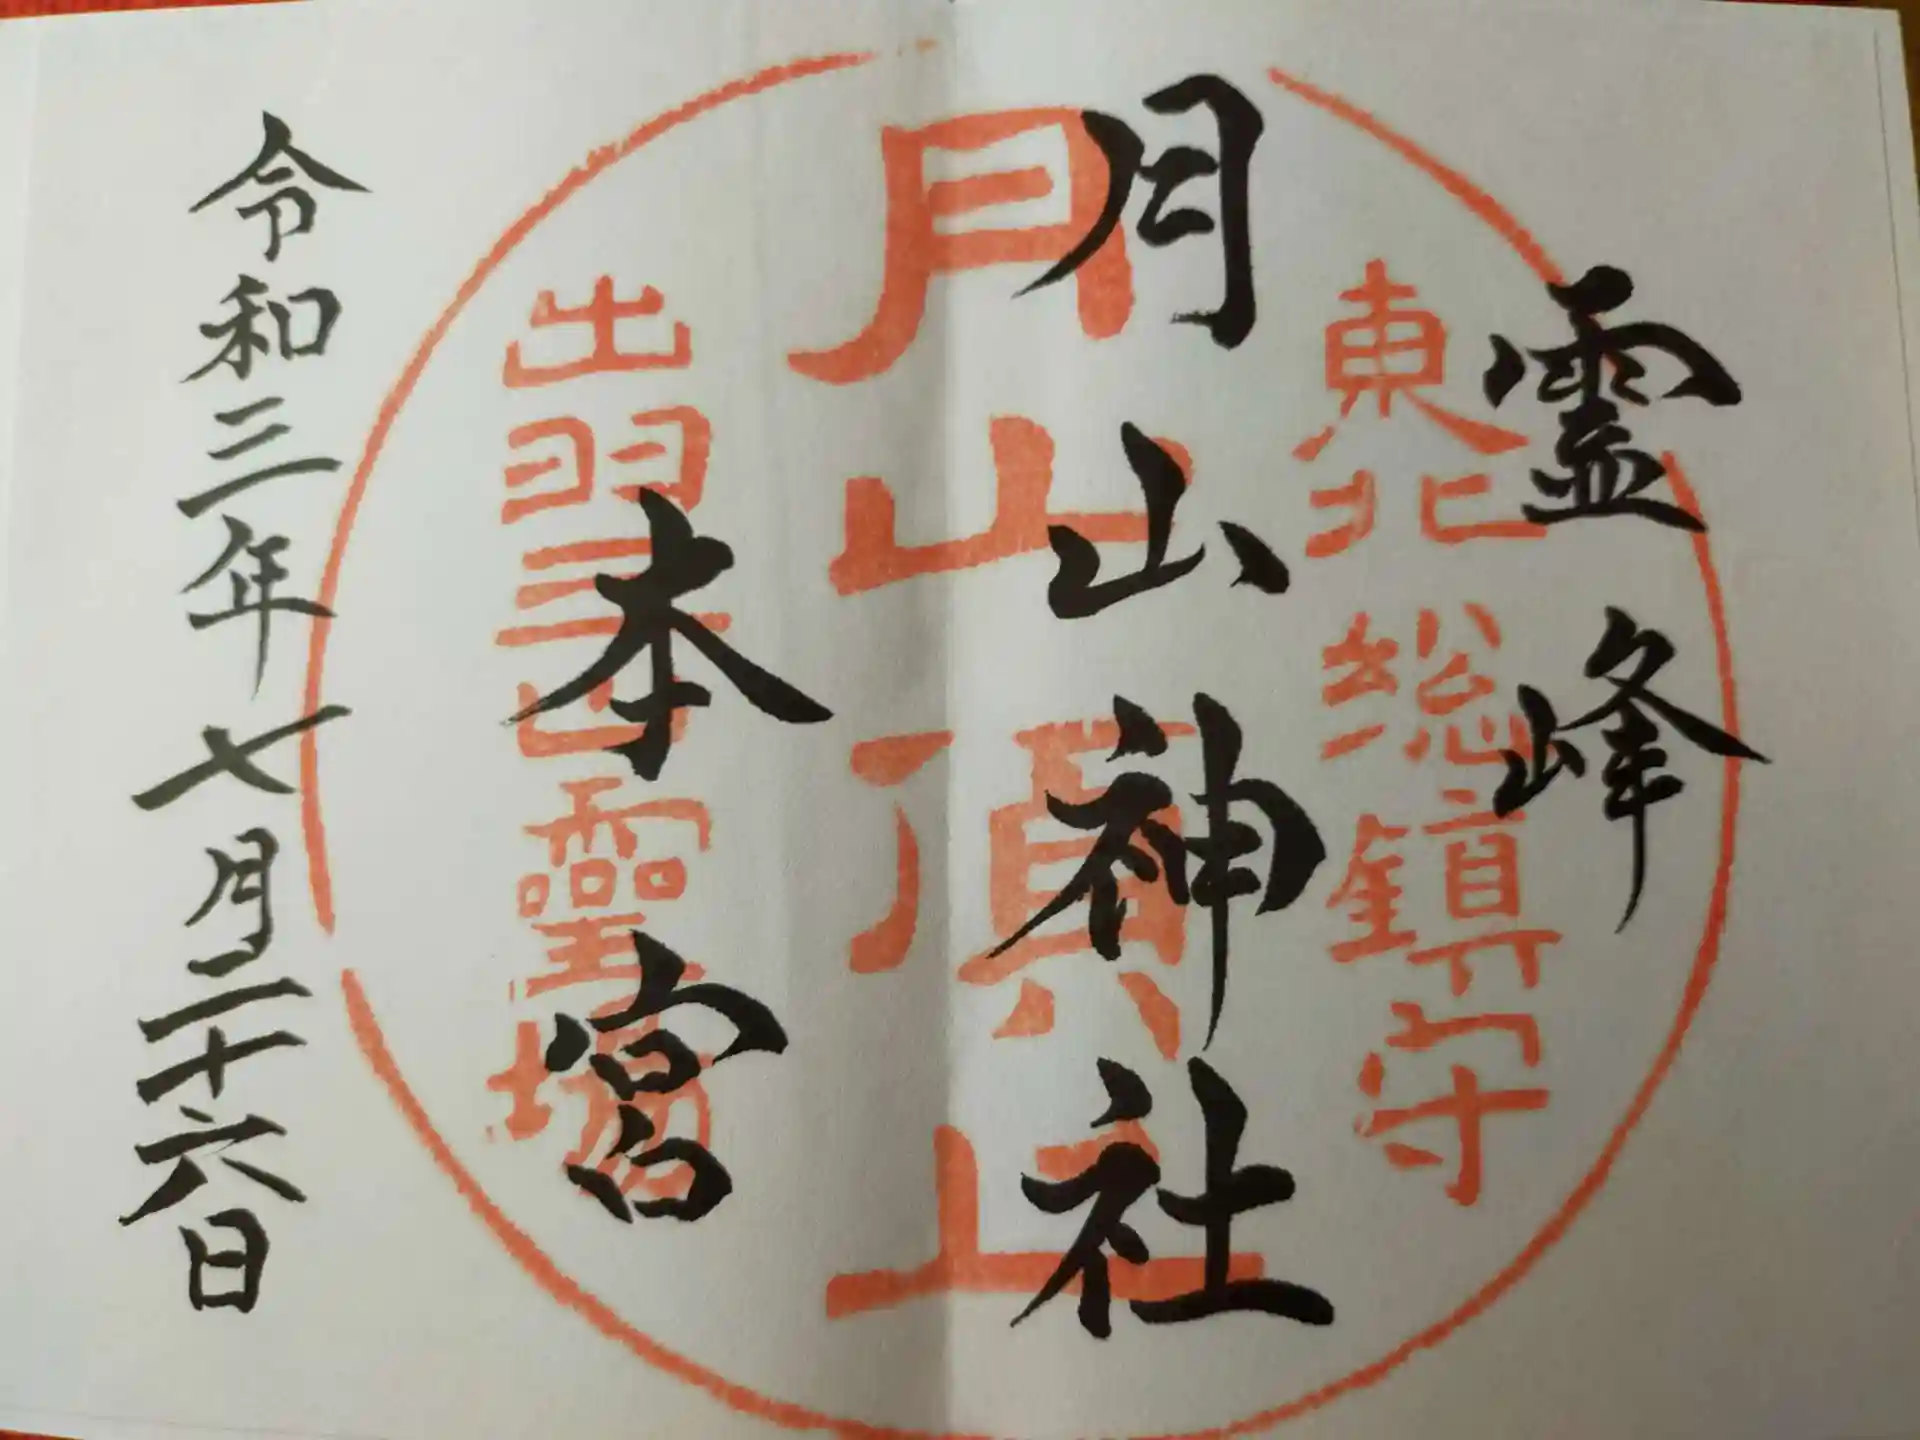 霊峰
東北総鎮守
月山神社
月山頂上
本宮
出羽三山霊場
令和三年七月二十六日